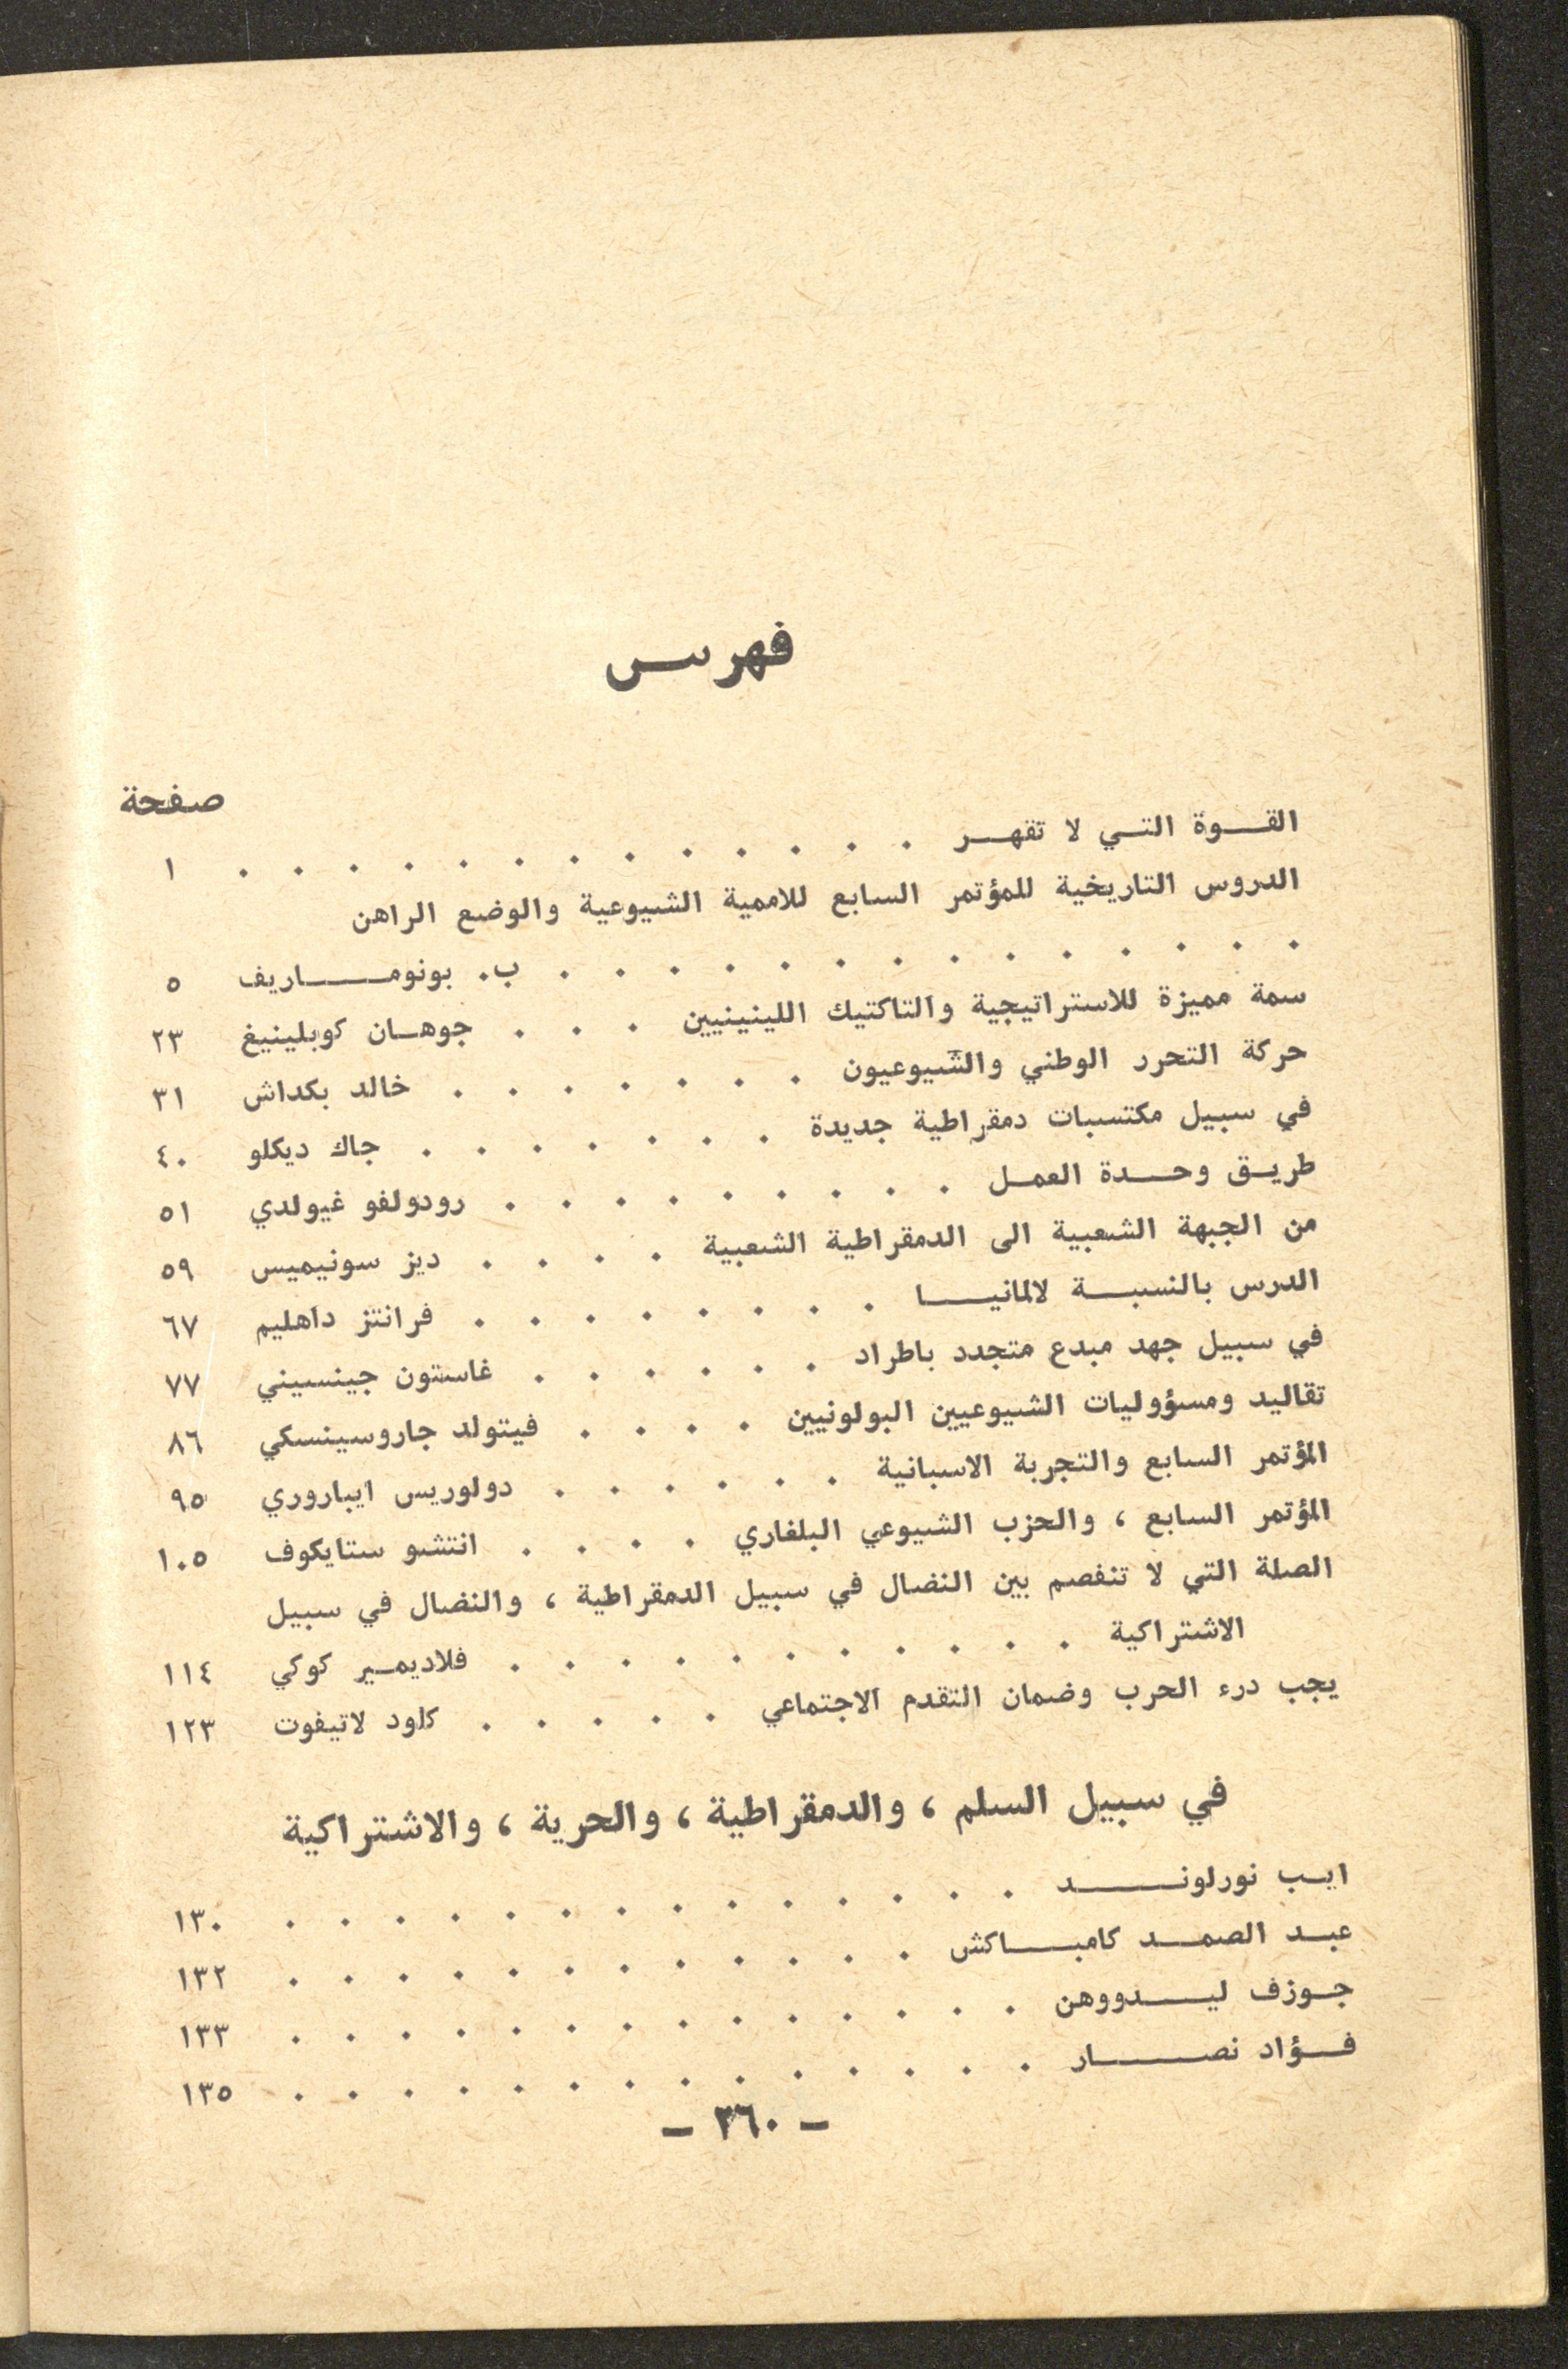 فهرس
صفحة
القوة التي لا تقهر . . . . . . . . . . . . . ١
الدروس التاريخية للمؤتمر السابع للاممية الشيوعية والوضع الراهن
. . . . . . . . . . . . . . ب. بونوماريف ٥
سمة مميزة للاستراتيجية والتاكتيك اللينينيين . . . جوهان كوبلينيغ ٢٣
حركة التحرر الوطني والشيوعيون . . . . . . . خالد بكداش ٣١
في سبيل مكتسبات دمقراطية جديدة . . . . . . . جاك ديكلو ٤٠
طريق وحدة العمل . . . . . . . . . رودولفو غيولدي ٥١
من الجبهة الشعبية الى الدمقراطية الشعبية . . . . ديز سونيميس ٥٩
الدرس بالنسبة لالمانيا . . . . . . . . فرانتز داهليم ٦٧
في سبيل جهد مبدع متجدد باطراد . . . . . . غاستون جينسيني ٧٧
تقاليد ومسؤوليات الشيوعيين البولونيين . . . . فيتولد جاروسينسكي ٨٦
المؤتمر السابع والتجربة الاسبانية . . . . . . دولوريس ايباروري ٩٥
المؤتمر السابع ، والحزب الشيوعي البلغاري . . . . انتشو ستايكوف ١٠٥
الصلة التي لا تنفصم بين النضال في سبيل الدمقراطية ، والنضال في سبيل
الاشتراكية . . . . . . . . . . . فلاديمير كوكي ١١٤
يجب درء الحرب وضمان التقدم الاجتماعي . . . . . كلود لاتيفوت ١٢٣
في سبيل السلم ، والدمقراطية ، والحرية ، والاشتراكية
ايب نورلوند . . . . . . . . . . . . . . ١٣٠
عبد الصمد كامباكش . . . . . . . . . . . . ١٣٢
جوزف ليدووهن . . . . . . . . . . . . . . ١٣٣
فؤاد نصار . . . . . . . . . . . . . . ١٣٥
– ٣٦٠ –